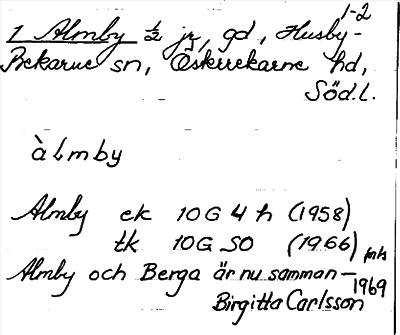 1-2
1 Almby 1/2 jr, gd, Husby-
Rekarne sn, Österrekarne hd,
Söd.l.
àlmby
Almby ek 10G 4 h (1958)
tk 10G SO (1966)
Almby och Berga är nu samman-
1969
Birgitta Carlsson